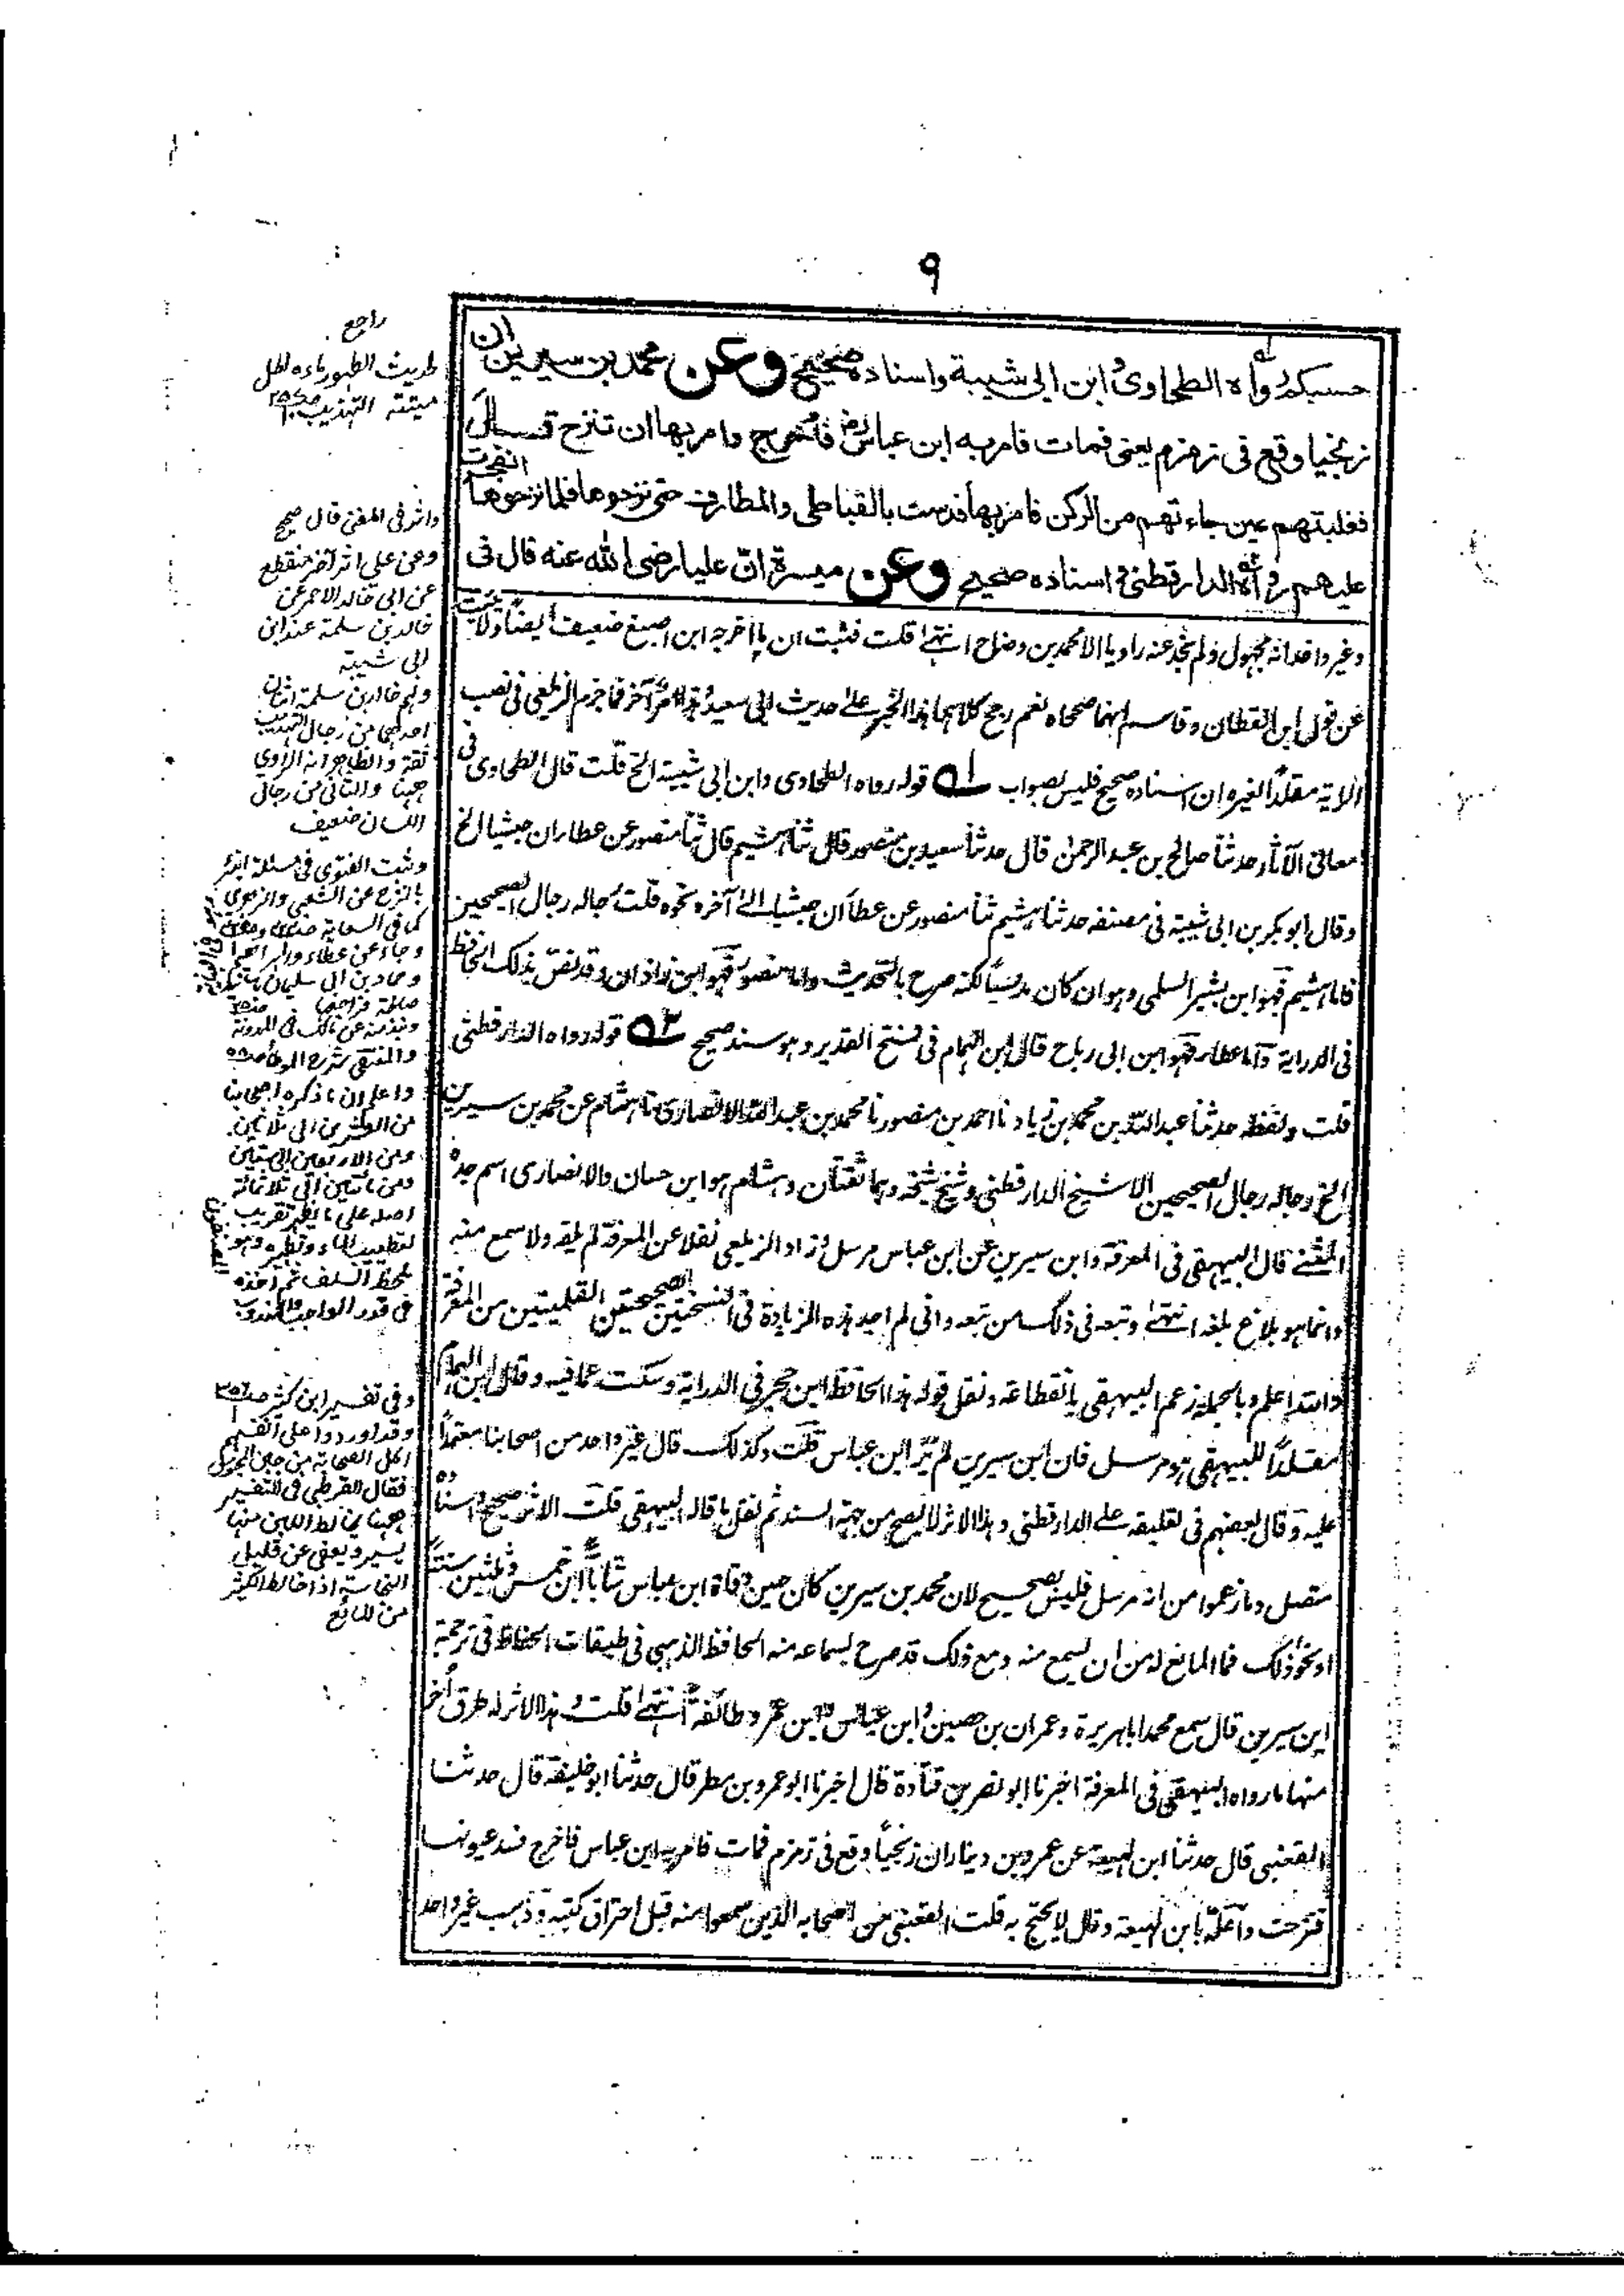 ٩
حسبكم رواه الطحاوى وابن ابى شيبة واسناده صحيح وعن محمد بن سيرين ان
زنجيا وقع فى زمزم يعنى فمات فامر به ابن عباس رض فاخرج وامر بها ان تنزح قال
فغلبتهم عين جاءتهم من الركن فامر بها فدست بالقباطى والمطارف حتى نزحوها فلما نزحوها انفجرت
عليهم رواه الدارقطنى واسناده صحيح وعن ميسرة ان عليا رضى الله عنه قال فى
وغير واحد انه مجهول ولم نجد عنه راويا الا محمد بن وضاح انتهى قلت فثبت ان ما اخرجه ابن اصبغ ضعيف ايضا ولا يثبت
عن قول ابن القطان وقاسم انهما صححاه نعم رجح كلاهما هذا الخبر على حديث ابى سعيد وهذا امر آخر فما جزم الزيلعى فى نصب
الراية مقلدا لغيره ان اسناده صحيح فليس بصواب ١ قوله رواه الطحاوى وابن ابى شيبة الخ قلت قال الطحاوى فى
معانى الآثار حدثنا صالح بن عبد الرحمن قال حدثنا سعيد بن منصور قال ثنا هشيم قال ثنا منصور عن عطاء ان حبشيا الخ
وقال ابو بكر بن ابى شيبة فى مصنفه حدثنا هشيم ثنا منصور عن عطاء ان حبشيا الى آخره نحوه قلت رجاله رجال الصحيحين
فاما هشيم فهو ابن بشير السلمى وهو ان كان مدلسا لكنه صرح بالتحديث واما منصور فهو ابن زاذان وقد نص بذلك الحافظ
فى الدراية وآما عطاء فهو ابن ابى رباح قال ابن الهمام فى فتح القدير وهو سند صحيح ٢ قوله رواه الدارقطنى
قلت ولفظه حدثنا عبد الله بن محمد بن زياد نا احمد بن منصور نا محمد بن عبد الله الانصارى نا هشام عن محمد بن سيرين
الخ رجاله رجال الصحيحين الا شيخ الدارقطنى وشيخ شيخه وهما ثقتان وهشام هو ابن حسان والانصارى اسم جده
المثنى قال البيهقى فى المعرفة وابن سيرين عن ابن عباس مرسل وزاد الزيلعى نقلا عن المعرفة لم يلقه ولا سمع منه
وانما هو بلاغ بلغه انتهى وتبعه فى ذلك من تبعه وانى لم اجد هذه الزيادة فى النسختين الصحيحتين القلميتين من المعرفة
والله اعلم وبالجملة زعم البيهقى بانقطاعه ونقل قوله هذا الحافظ ابن حجر فى الدراية وسكت عما فيه وقال ابن الهمام
مقلدا للبيهقى هو مرسل فان ابن سيرين لم ير ابن عباس قلت وكذلك قال غير واحد من اصحابنا معتمدا
عليه وقال بعضهم فى تعليقه على الدارقطنى وهذا الاثر لا يصح من جهة السند ثم نقل ما قاله البيهقى قلت الاثر صحيح واسناده
متصل وما زعموا من انه مرسل فليس بصحيح لان محمد بن سيرين كان حين وفاة ابن عباس شابا ابن خمس وثلثين سنة
او نحو ذلك فما المانع له من ان يسمع منه ومع ذلك قد صرح بسماعه منه الحافظ الذهبى فى طبقات الحفاظ فى ترجمة
ابن سيرين قال سمع محمد ابا هريرة وعمران بن حصين وابن عباس وابن عمر وطائفة انتهى قلت وهذا الاثر له طرق اخر
منها ما رواه البيهقى فى المعرفة اخبرنا ابو نصر بن قتادة قال اخبرنا ابو عمرو بن مطر قال حدثنا ابو خليفة قال حدثنا
القعنبى قال حدثنا ابن لهيعة عن عمرو بن دينار ان زنجيا وقع فى زمزم فمات فامر به ابن عباس فاخرج فسد عيونها
فنزحت واعله بابن لهيعة وقال لا يحتج به قلت القعنبى من اصحابه الذين سمعوا منه قبل احتراق كتبه وذهب غير واحد
راجع
واثر فى المغنى قال صحيح
وعن على اثر آخر منقطع
عن ابى خالد الاحمر عن
خالد بن سلمة عند ابن
ابى شيبة
وهم خالد بن سلمة اثنان
احدهما من رجال التهذيب
ثقة والظاهر انه الراوى
ههنا والثانى من رجال
اللسان ضعيف
وثبت الفتوى فى مسئلة البئر
بالنزح عن الشعبى والزهرى
والمنتقى شرح الموطأ
واعلم ان ما ذكره اصحابنا
من العشرين الى ثلاثين
ومن الاربعين الى ستين
ومن مائتين الى ثلاثمائة
وفى تفسير ابن كثير
فقال القرطبى فى التفسير
ههنا مخالطة اللبن منها
يسير ويعفى عن قليل
النجاسة اذا خالط الكثير
من المائع